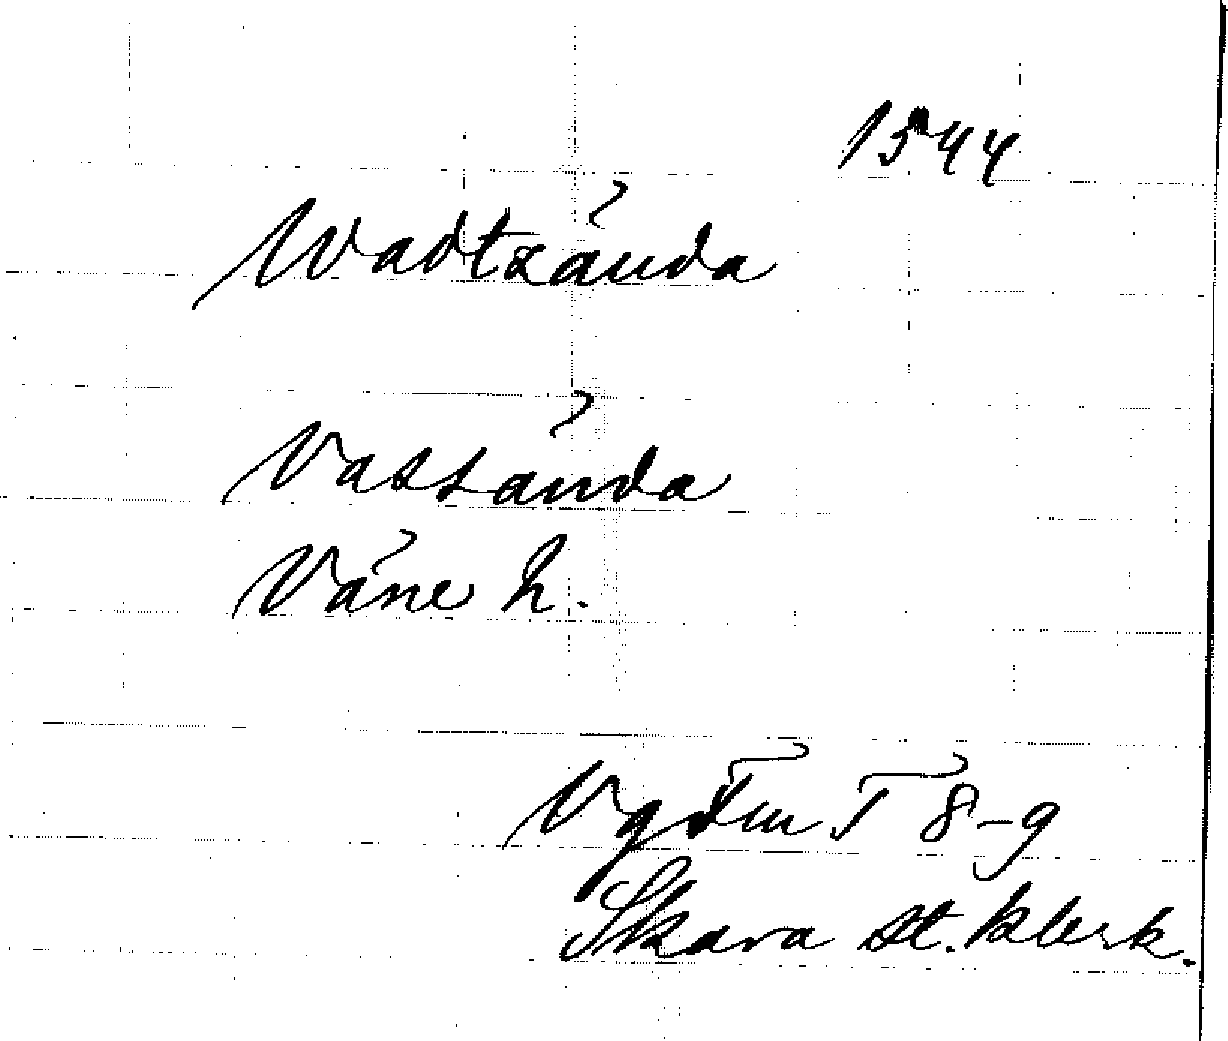 1544
Wadtzända
Vassända
Väne h.
Vg Fm T 8-9
Skara st. klerk.